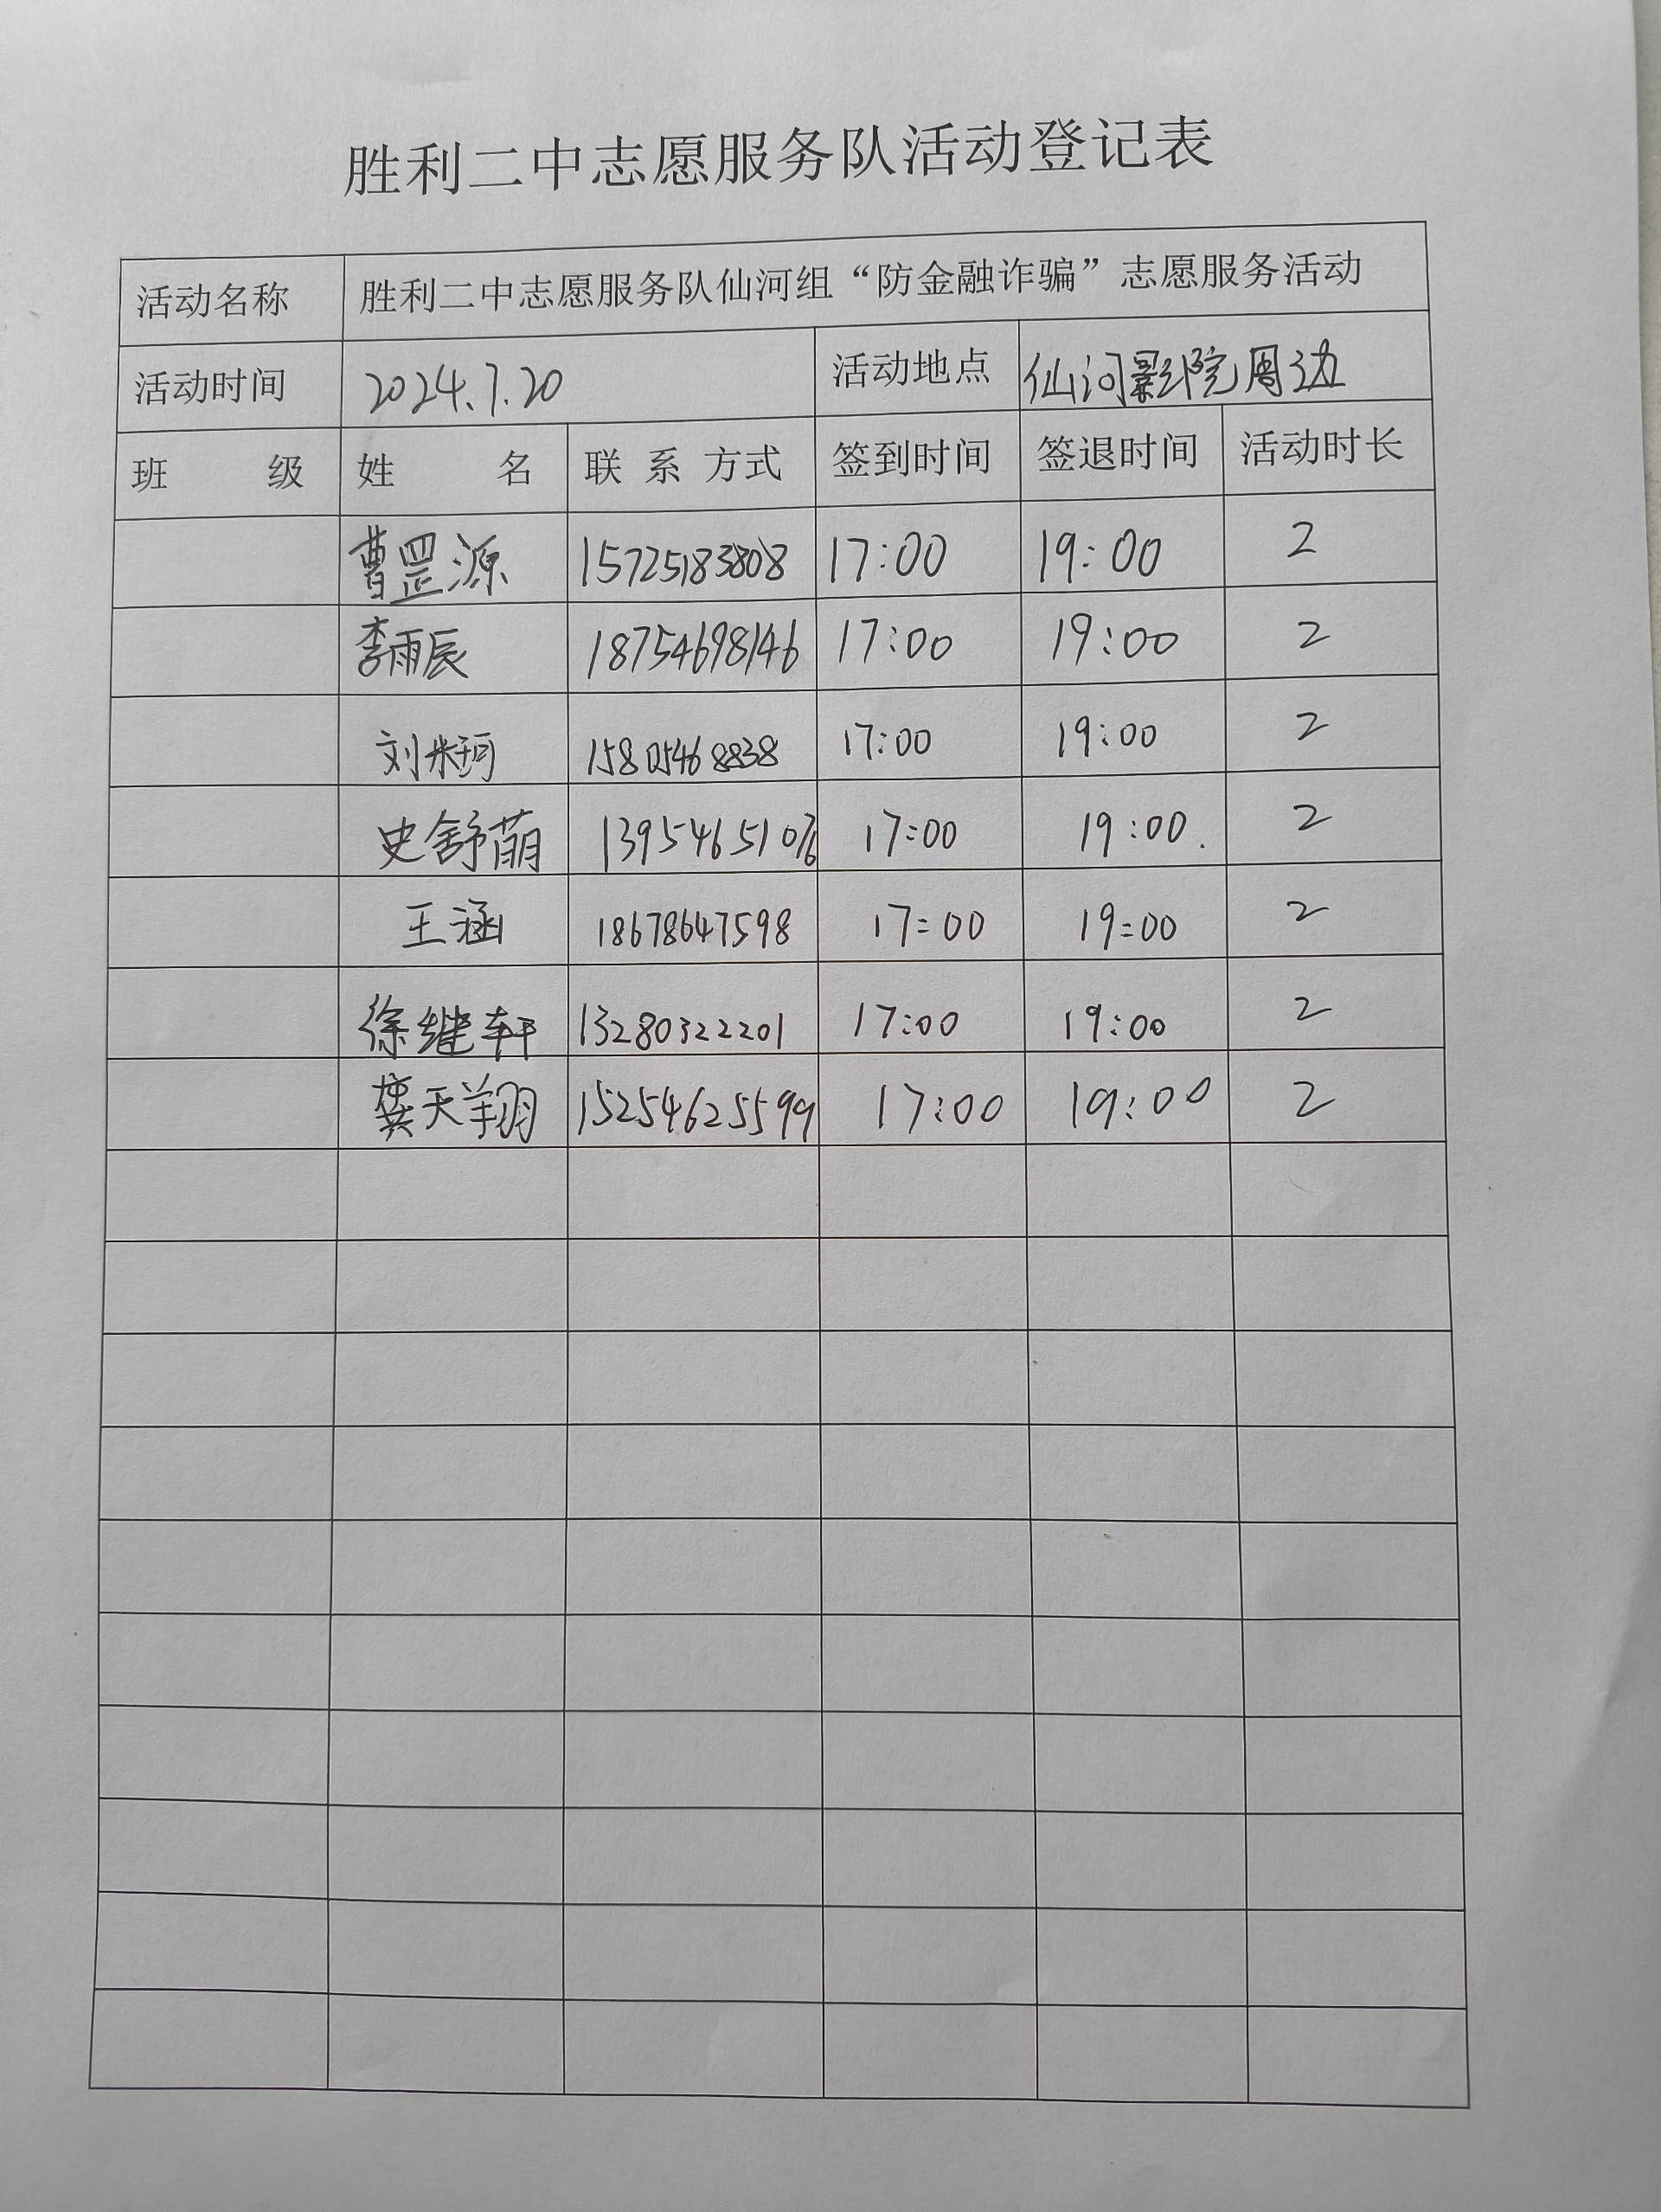 胜利二中志愿服务队活动登记表
活动名称 胜利二中志愿服务队仙河组“防金融诈骗”志愿服务活动
活动时间 2024.7.20 活动地点 仙河影院周边
班 级 姓 名 联 系 方式 签到时间 签退时间 活动时长
曹罡源 15725183808 17:00 19:00 2
李雨辰 18754698146 17:00 19:00 2
刘米珂 15805468838 17:00 19:00 2
史舒萌 13954651076 17:00 19:00. 2
王涵 18678647598 17:00 19:00 2
徐继轩 13280322201 17:00 19:00 2
龚天翔 15254625599 17:00 19:00 2